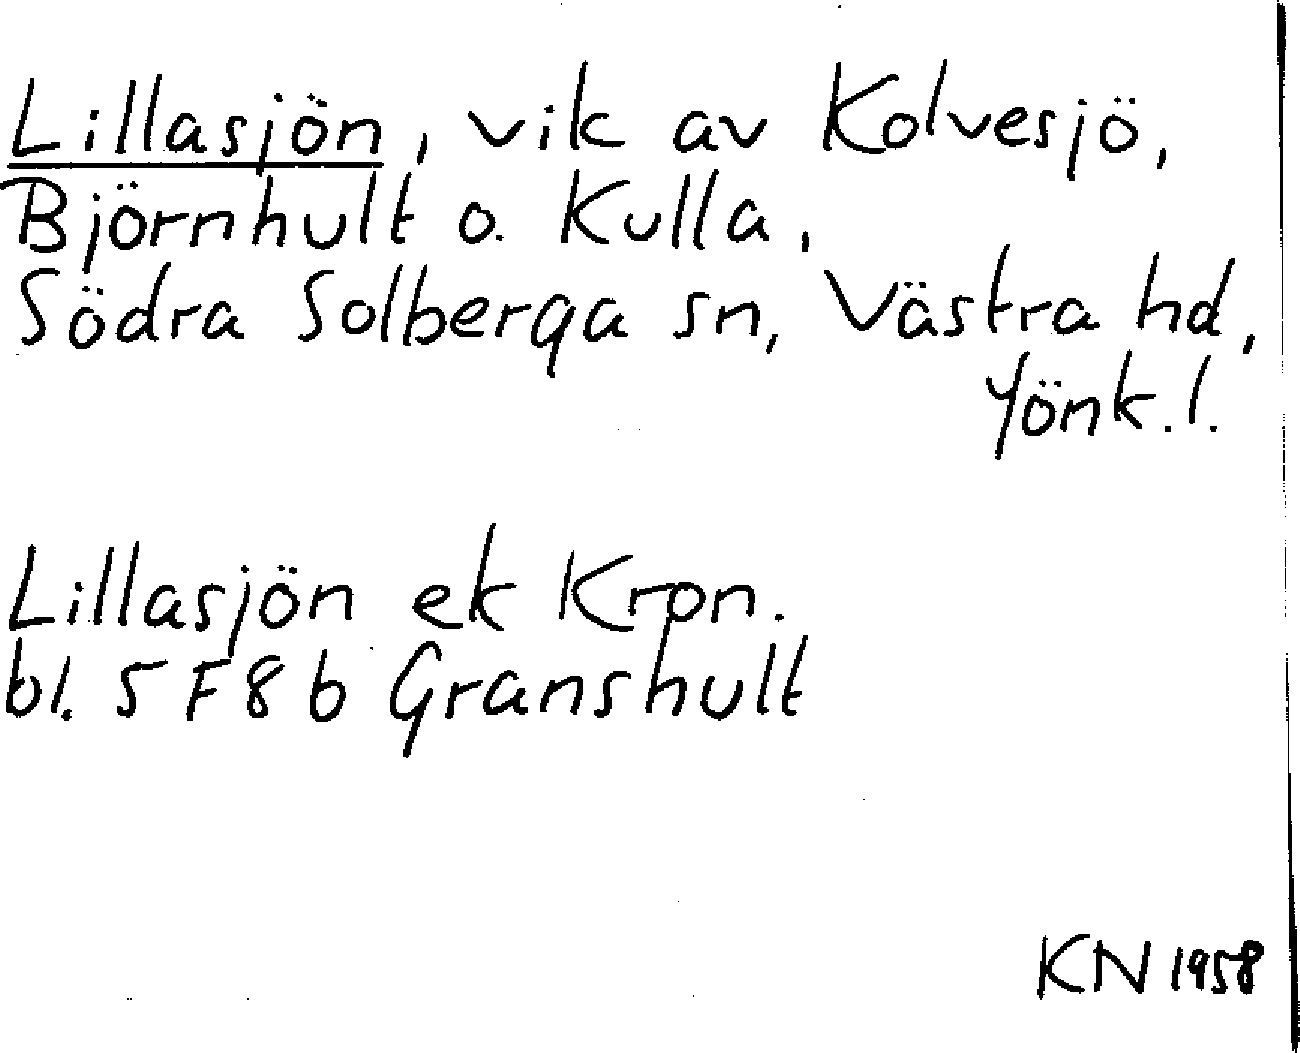 Lillasjön, vik av Kolvesjö,
Björnhult o. Kulla,
Södra Solberga sn, Västra hd,
Jönk.l.
Lillasjön ek Kron.
bl. 5 F 8 b Granshult
KN 1958